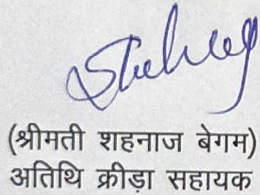 (श्रीमती शहनाज बेगम)
अतिथि क्रीड़ा सहायक